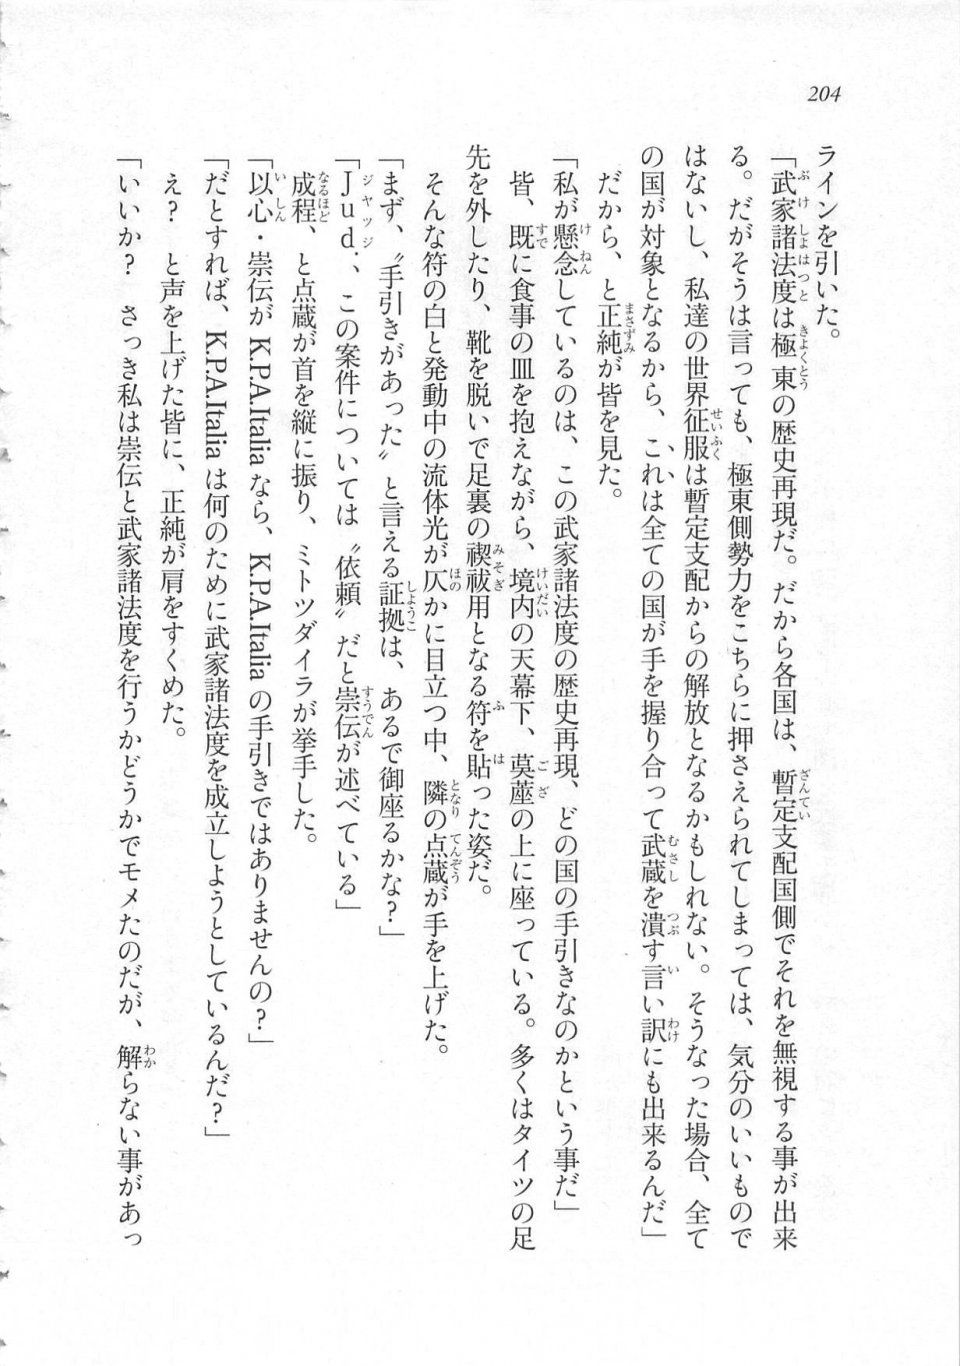 204
ラインを引いた。
「武家諸法度は極東の歴史再現だ。だから各国は、暫定支配国側でそれを無視する事が出来
る。だがそうは言っても、極東側勢力をこちらに押さえられてしまっては、気分のいいもので
はないし、私達の世界征服は暫定支配からの解放となるかもしれない。そうなった場合、全て
の国が対象となるから、これは全ての国が手を握り合って武蔵を潰す言い訳にも出来るんだ」
だから、と正純が皆を見た。
「私が懸念しているのは、この武家諸法度の歴史再現、どの国の手引きなのかという事だ」
皆、既に食事の皿を抱えながら、境内の天幕下、茣蓙の上に座っている。多くはタイツの足
先を外したり、靴を脱いで足裏の禊祓用となる符を貼った姿だ。
そんな符の白と発動中の流体光が仄かに目立つ中、隣の点蔵が手を上げた。
「まず、〝手引きがあった〟と言える証拠は、あるで御座るかな？」
「Ｊｕｄ．、この案件については〝依頼〟だと崇伝が述べている」
成程、と点蔵が首を縦に振り、ミトツダイラが挙手した。
「以心・崇伝が K.P.A.Italia なら、K.P.A.Italia の手引きではありませんの？」
「だとすれば、K.P.A.Italia は何のために武家諸法度を成立しようとしているんだ？」
え？　と声を上げた皆に、正純が肩をすくめた。
「いいか？　さっき私は崇伝と武家諸法度を行うかどうかでモメたのだが、解らない事があっ